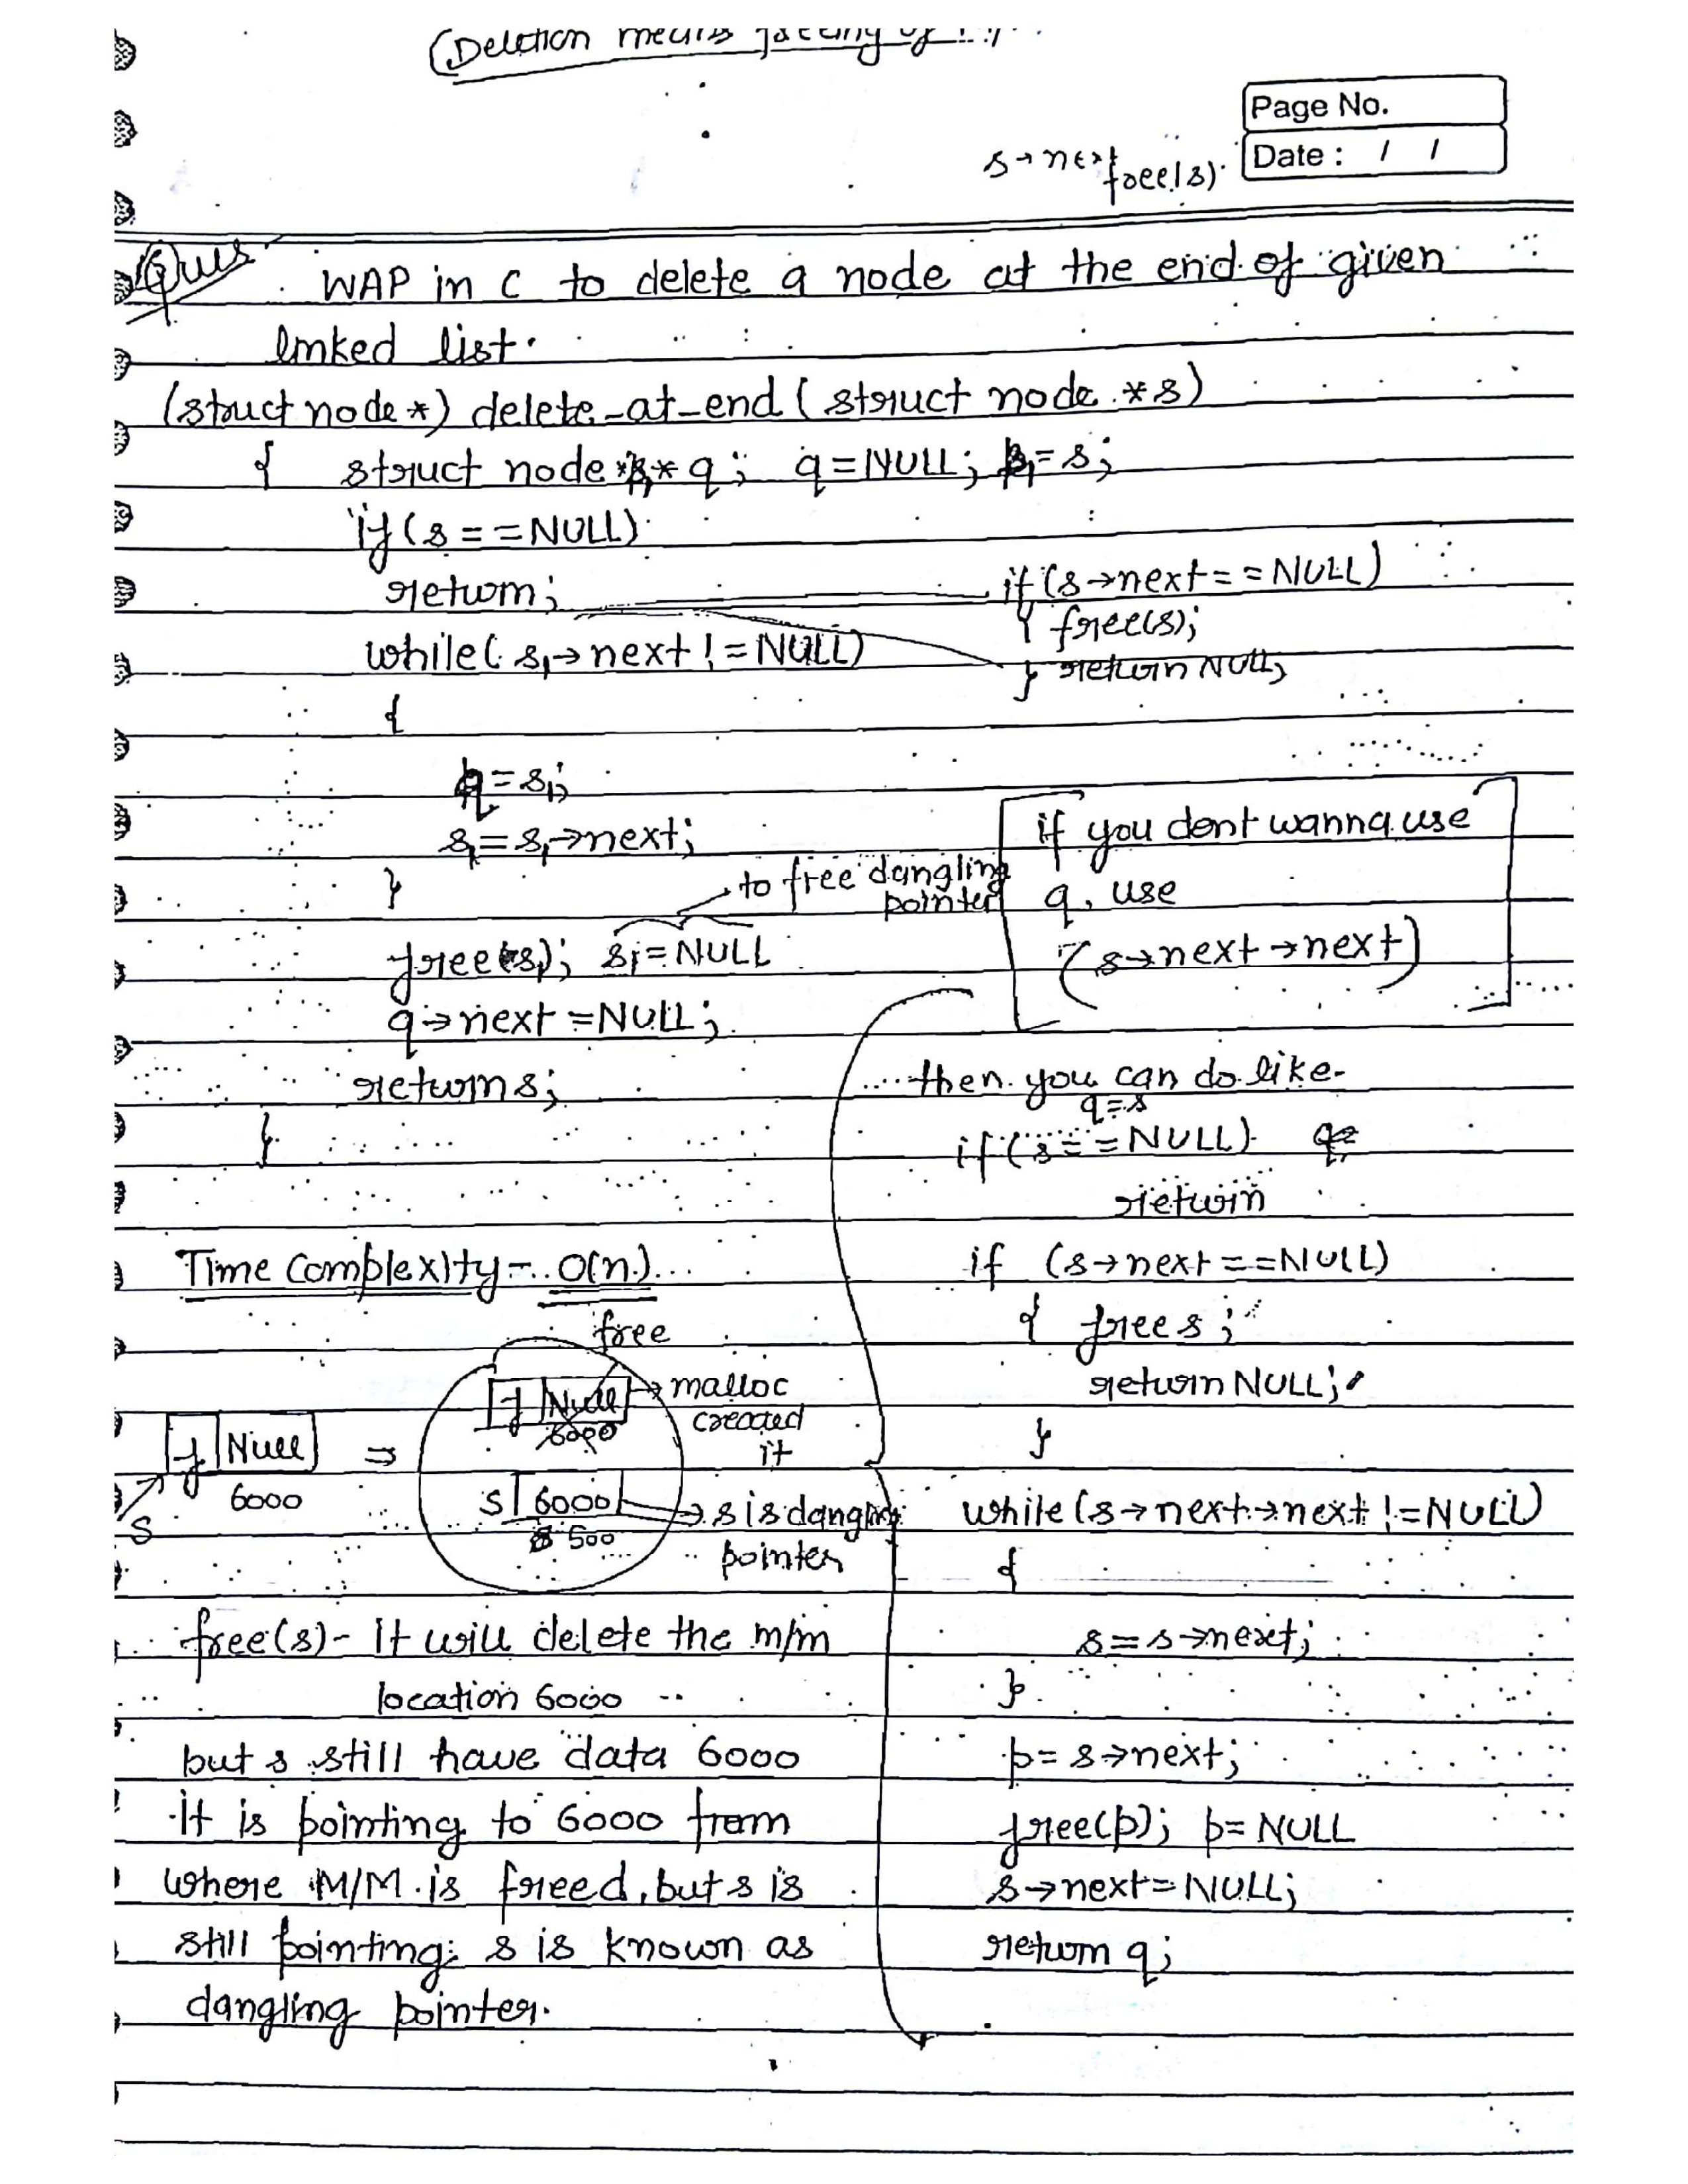 (Deletion means
Page No.
Date : / /
s→next
free(s)
Ques
WAP in C to delete a node at the end of given
linked list.
(struct node*) delete_at_end (struct node *s)
{ struct node *s₁, *q; q=NULL; s₁=s;
if (s==NULL)
return;
while(s₁→next!=NULL)
{
q=s₁;
s₁=s₁→next;
}
to free dangling
pointer
free(s₁); s₁=NULL
q→next=NULL;
return s;
}
if (s→next==NULL)
{ free(s);
} return NULL;
if you dont wanna use
q, use
(s→next→next)
then you can do like-
q=s
if (s==NULL)
return
if (s→next==NULL)
{ free s;
return NULL;
}
while (s→next→next!=NULL)
{
s=s→next;
}
p=s→next;
free(p); p=NULL
s→next=NULL;
return q;
Time complexity- O(n)
free
Null → malloc
created
it
6000
Null ⇒
6000
S
S 6000 → s is dangling
pointer
500
free(s)- It will delete the m/m
location 6000
but s still have data 6000
it is pointing to 6000 from
where M/M is freed, but s is
still pointing; s is known as
dangling pointer.